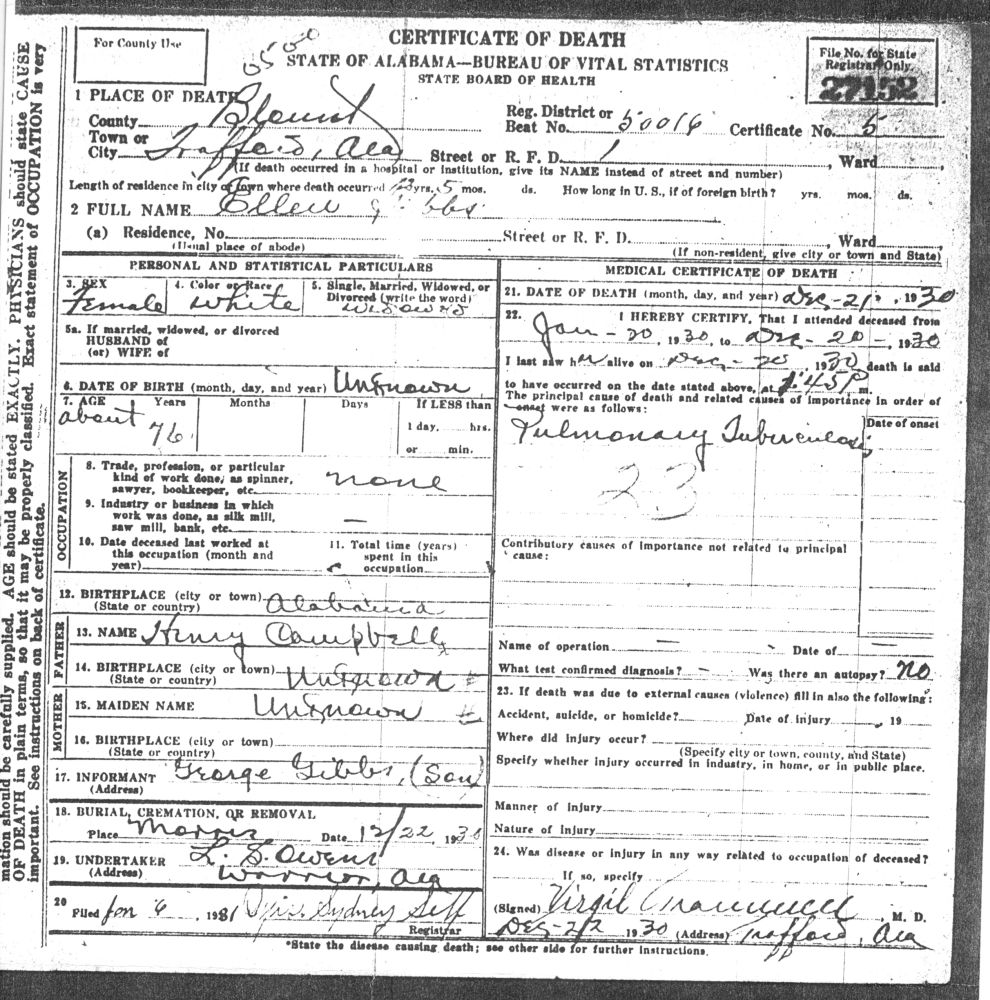 For County Use
CERTIFICATE OF DEATH
STATE OF ALABAMA—BUREAU OF VITAL STATISTICS
STATE BOARD OF HEALTH
File No. for State
Registrar Only.
27152
1 PLACE OF DEATH
County Blount
Reg. District or
Beat No. 50016 Certificate No. 5
Town or
City Trafford, Ala Street or R. F. D. 1, Ward
(If death occurred in a hospital or institution, give its NAME instead of street and number)
Length of residence in city or town where death occurred yrs. 5 mos. ds. How long in U. S., if of foreign birth? yrs. mos. ds.
2 FULL NAME Ellen Gibbs
(a) Residence, No. Street or R. F. D. , Ward
(Usual place of abode) (If non-resident, give city or town and State)
PERSONAL AND STATISTICAL PARTICULARS
3. SEX Female
4. Color or Race White
5. Single, Married, Widowed, or
Divorced (write the word)
Widowed
5a. If married, widowed, or divorced
HUSBAND of
(or) WIFE of
6. DATE OF BIRTH (month, day, and year) Unknown
7. AGE Years Months Days If LESS than
about 76
1 day, hrs.
or min.
OCCUPATION
8. Trade, profession, or particular
kind of work done, as spinner,
sawyer, bookkeeper, etc. none
9. Industry or business in which
work was done, as silk mill,
saw mill, bank, etc. —
10. Date deceased last worked at
this occupation (month and
year)
11. Total time (years)
spent in this
occupation
12. BIRTHPLACE (city or town) Alabama
(State or country)
FATHER
13. NAME Henry Campbell
14. BIRTHPLACE (city or town)
(State or country) Unknown
MOTHER
15. MAIDEN NAME Unknown
16. BIRTHPLACE (city or town)
(State or country)
17. INFORMANT George Gibbs, (Son)
(Address)
18. BURIAL, CREMATION, OR REMOVAL
Place Morris Date 12/22, 1930
19. UNDERTAKER L. S. Owens
(Address) Warrior, Ala
20
Filed Jan 6, 1931 Sydney Self
Registrar
MEDICAL CERTIFICATE OF DEATH
21. DATE OF DEATH (month, day, and year) Dec-21, 1930
22. I HEREBY CERTIFY, That I attended deceased from
Jan-20, 1930, to Dec-20-, 1930
I last saw her alive on Dec-20, 1930 death is said
to have occurred on the date stated above, at 1:45 P m.
The principal cause of death and related causes of importance in order of
onset were as follows:
Date of onset
Pulmonary Tuberculosis
23
Contributory causes of importance not related to principal
cause:
Name of operation — Date of —
What test confirmed diagnosis? — Was there an autopsy? No
23. If death was due to external causes (violence) fill in also the following:
Accident, suicide, or homicide? Date of injury , 19
Where did injury occur?
(Specify city or town, county, and State)
Specify whether injury occurred in industry, in home, or in public place.
Manner of injury
Nature of injury
24. Was disease or injury in any way related to occupation of deceased?
If so, specify
(Signed) Virgil , M. D.
Dec-22 1930 (Address) Trafford, Ala
*State the disease causing death; see other side for further instructions.
mation should be carefully supplied. AGE should be stated EXACTLY. PHYSICIANS should state CAUSE
OF DEATH in plain terms, so that it may be properly classified. Exact statement of OCCUPATION is very
important. See instructions on back of certificate.